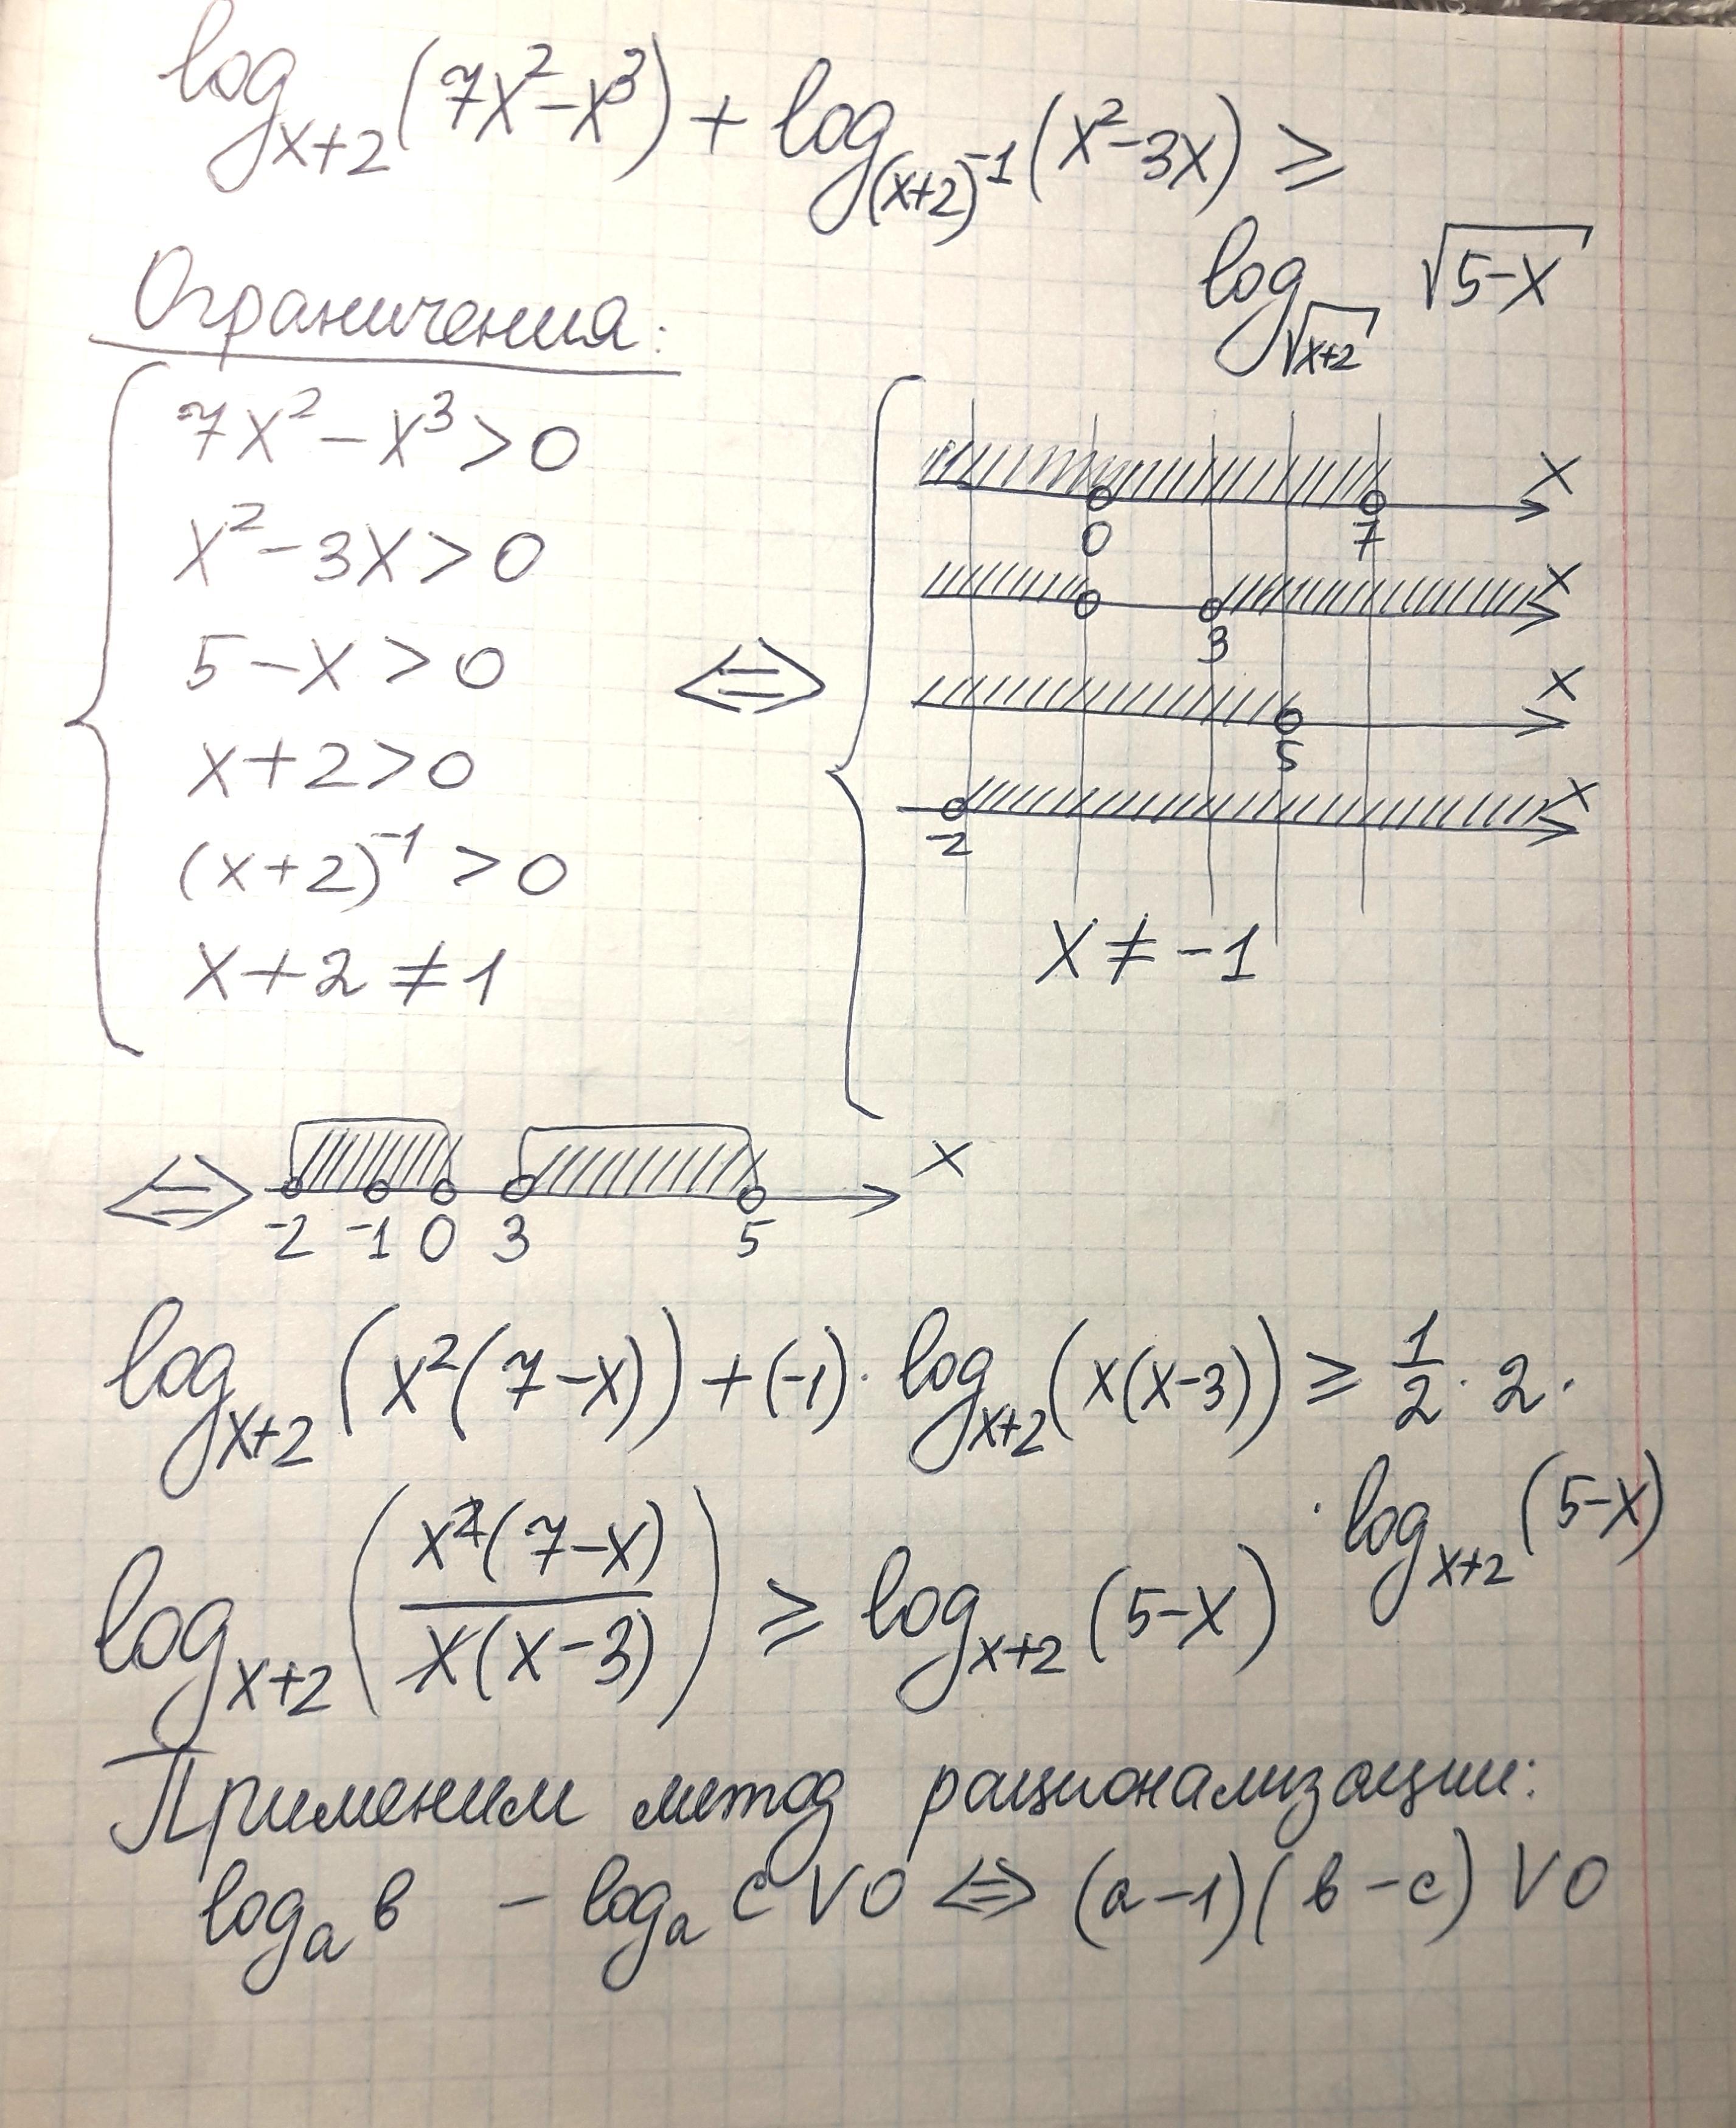 log_{x+2}(7x²-x³) + log_{(x+2)^{-1}}(x²-3x) ≥
log_{√(x+2)} √(5-x)
Ограничения:
7x² - x³ > 0
x² - 3x > 0
5 - x > 0
x + 2 > 0
(x+2)^{-1} > 0
x + 2 ≠ 1
⇔
x
0 7
x
3
x
5
x
-2
x ≠ -1
⇔ x
-2 -1 0 3 5
log_{x+2}(x²(7-x)) + (-1)· log_{x+2}(x(x-3)) ≥ 1/2 · 2 ·
· log_{x+2}(5-x)
log_{x+2}(x²(7-x)/x(x-3)) ≥ log_{x+2}(5-x)
Применим метод рационализации:
log_a в - log_a с V 0 ⇔ (a-1)(в-с) V 0